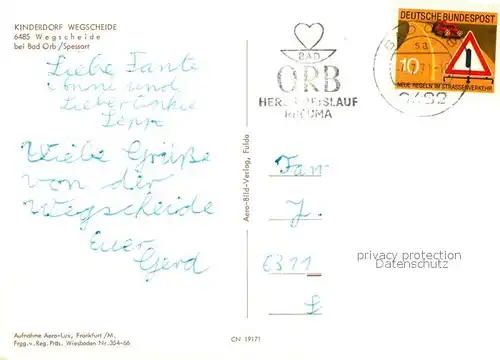 KINDERDORF WEGSCHEIDE
6485 Wegscheide
bei Bad Orb/Spessart
Liebe Tante
und
Lieber Onkel
Seppe
Viele Grüße
von der
Wegscheide
Euer
Gerd
Aufnahme Aero-Lux, Frankfurt/M.
Frgg. v. Reg. Präs. Wiesbaden Nr. 354-66
Aero-Bild-Verlag, Fulda
CN 19171
BAD
ORB
HERZ KREISLAUF
RHEUMA
DEUTSCHE BUNDESPOST
10
NEUE REGELN IM STRASSENVERKEHR
BAD ORB
Fam
J.
6311
L
privacy protection
Datenschutz